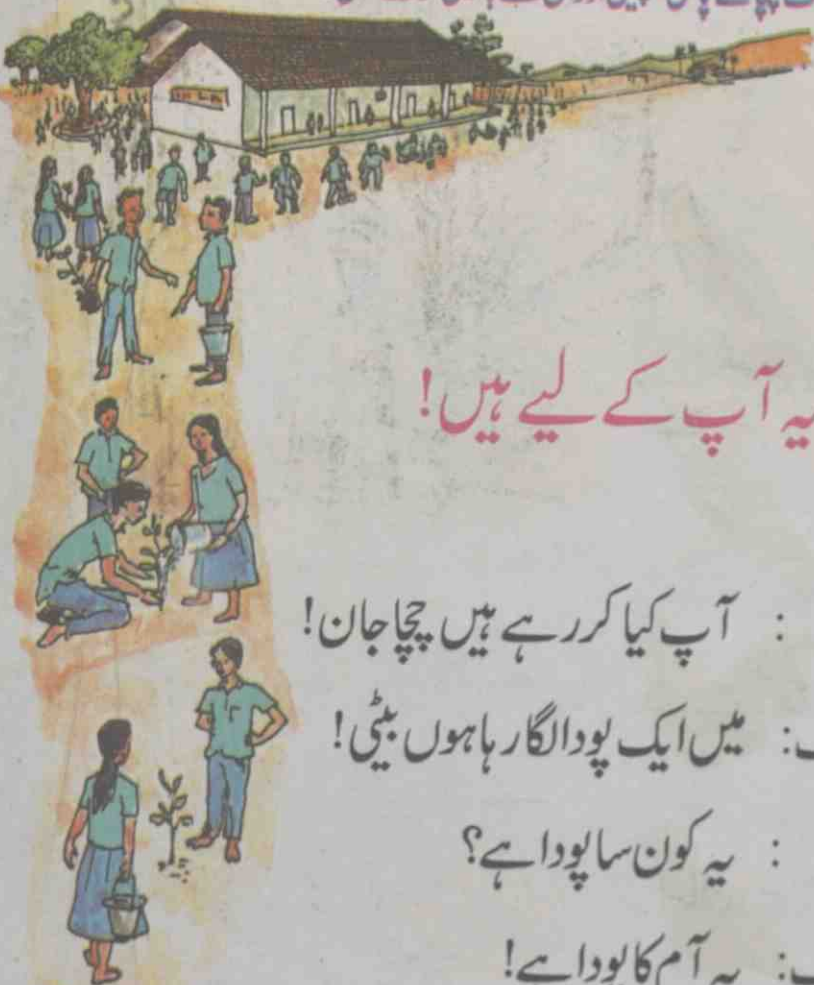 یہ آپ کے لیے ہیں!
: آپ کیا کر رہے ہیں چچا جان!
: میں ایک پودا لگا رہا ہوں بیٹی!
: یہ کون سا پودا ہے؟
: یہ آم کا پودا ہے!